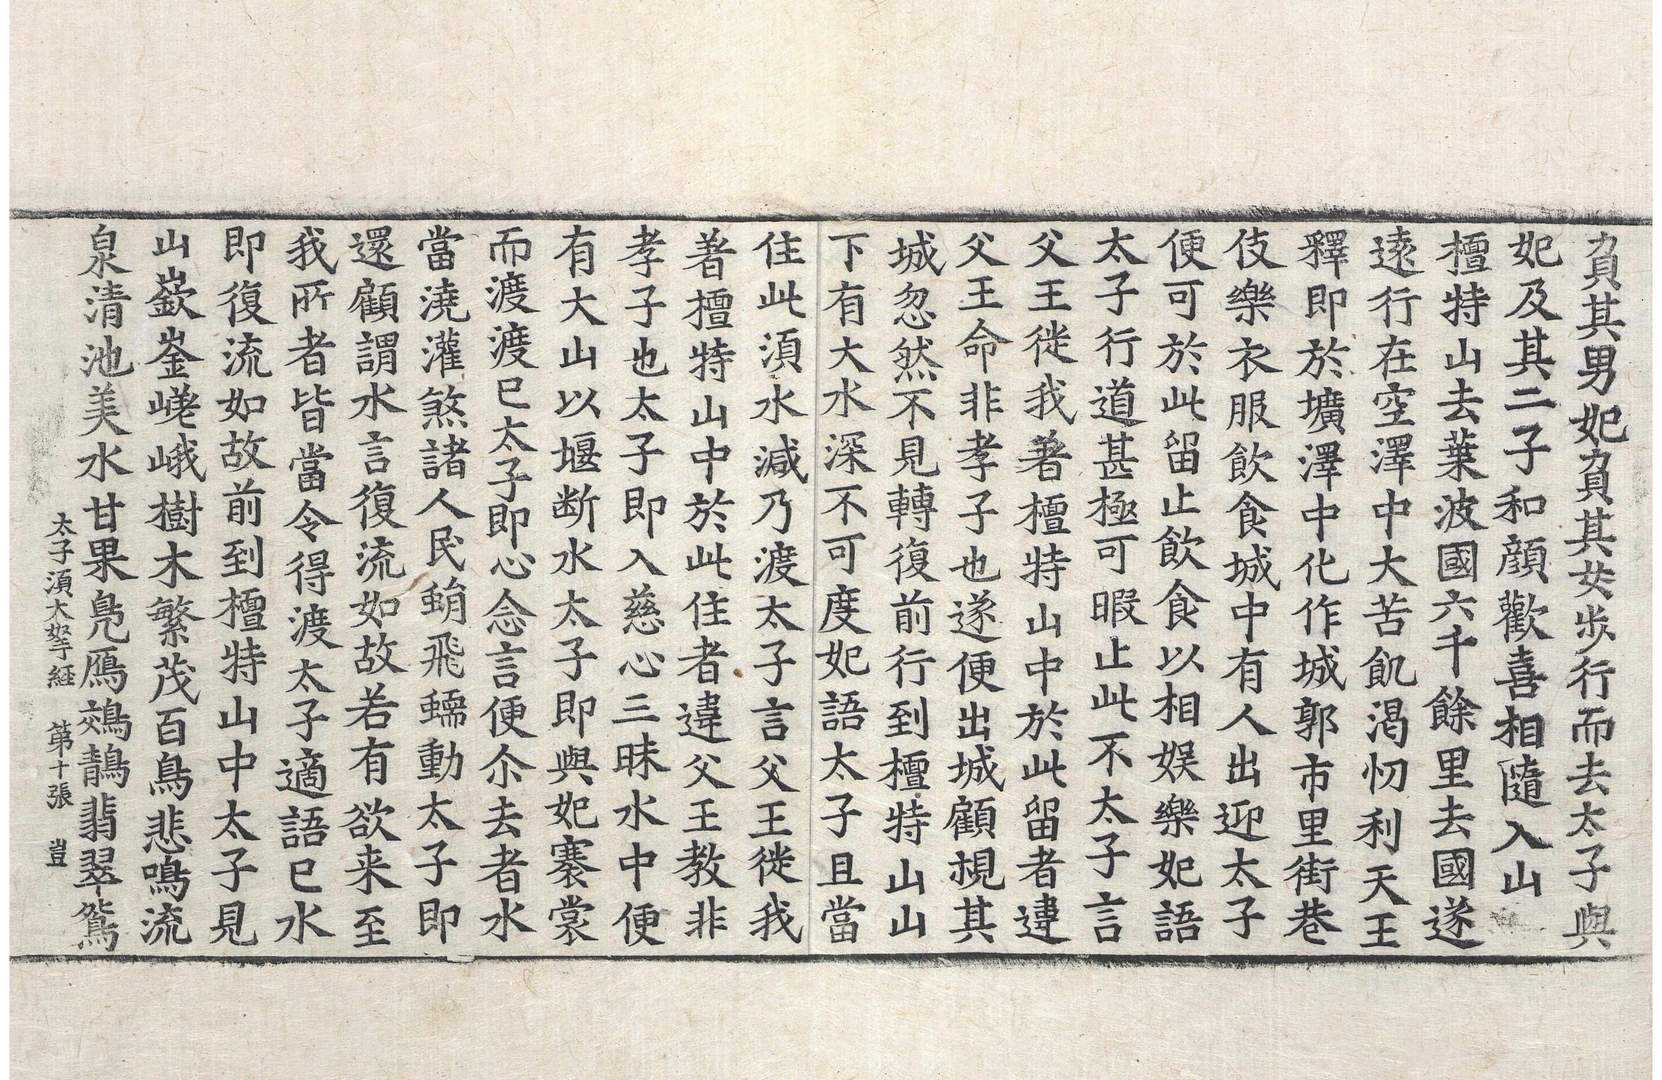 負其男妃負其女步行而去太子與
妃及其二子和顔歡喜相隨入山
檀特山去葉波國六千餘里去國遂
遠行在空澤中大苦飢渴忉利天王
釋即於壙澤中化作城郭市里街巷
伎樂衣服飲食城中有人出迎太子
便可於此留止飲食以相娱樂妃語
太子行道甚極可暇止此不太子言
父王徙我著檀特山中於此留者違
父王命非孝子也遂便出城顧視其
城忽然不見轉復前行到檀特山山
下有大水深不可度妃語太子且當
住此湏水減乃渡太子言父王徙我
著檀特山中於此住者違父王教非
孝子也太子即入慈心三昧水中便
有大山以堰断水太子即與妃褰裳
而渡渡已太子即心念言便尒去者水
當澆灌煞諸人民蜎飛蠕動太子即
還顧謂水言復流如故若有欲来至
我所者皆當令得渡太子適語已水
即復流如故前到檀特山中太子見
山嶔崟嵯峨樹木繁茂百鳥悲鳴流
泉清池美水甘果鳬鴈鵁鶄翡翠鴛
太子湏大拏経　第十張　豈